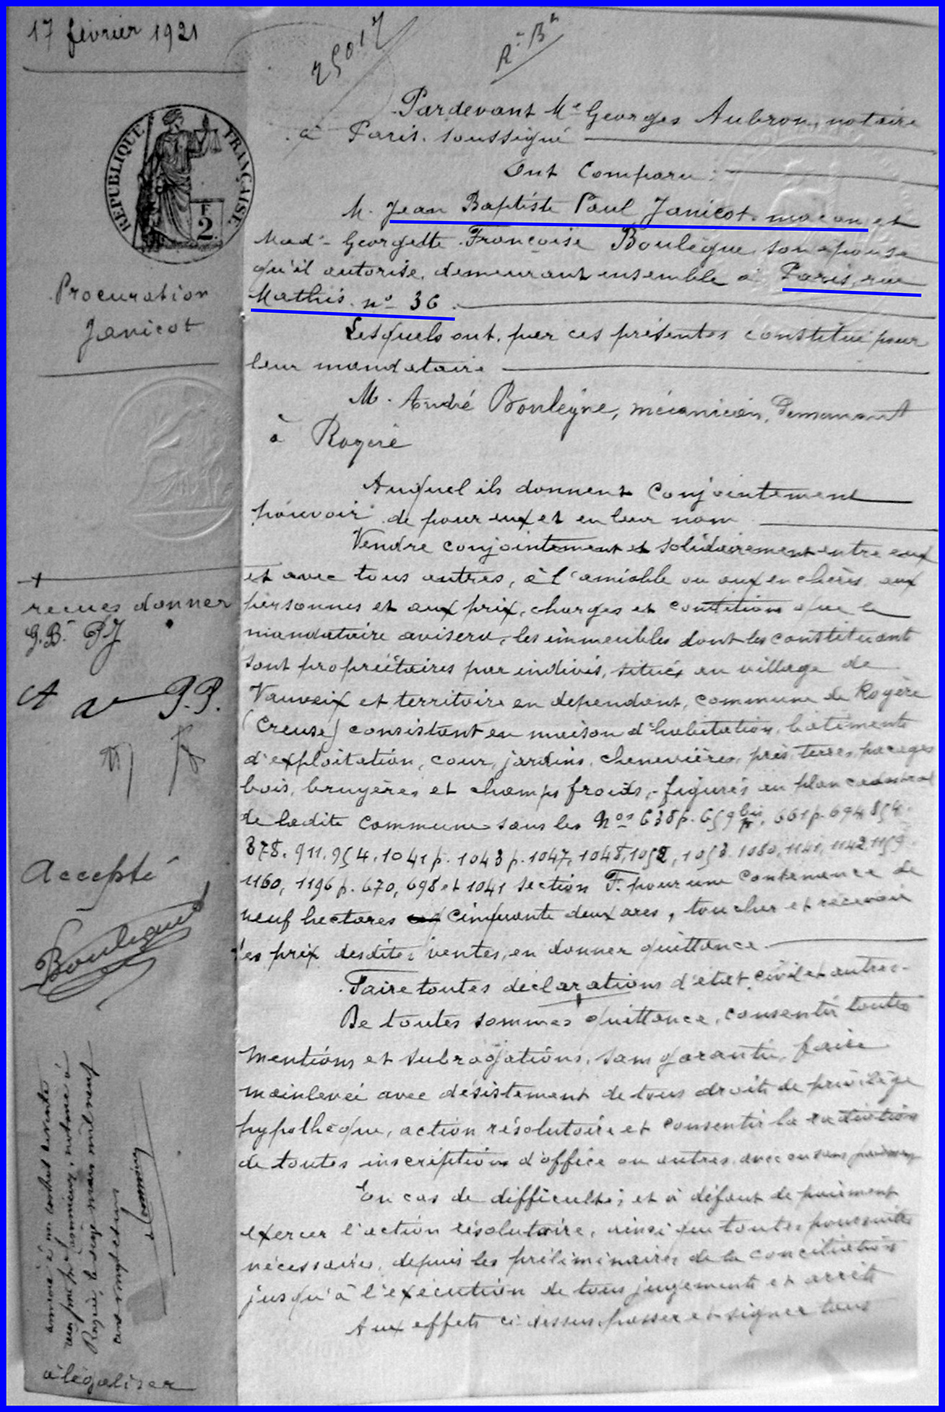 17 février 1921
25017
R - B
RÉPUBLIQUE FRANÇAISE
2
Procuration
Janicot
Pardevant Me Georges Aubron, notaire
à Paris, soussigné
Ont Comparu :
M. Jean Baptiste Paul Janicot maçon et
Made Georgette Françoise Boulègue son épouse
qu'il autorise, demeurant ensemble à Paris, rue
Mathis no 36.
Lesquels ont, par ces présentes constitué pour
leur mandataire
M. André Boulègue, mécanicien, demeurant
à Royère
Auquel ils donnent conjointement
pouvoir de pour eux et en leur nom
Vendre conjointement et solidairement entre eux
et avec tous autres, à l'amiable ou aux enchères, aux
personnes et aux prix, charges et conditions que le
mandataire avisera, les immeubles dont les constituant
sont propriétaires par indivis, situés au village de
Vauveix et territoire en dépendant, commune de Royère
(Creuse) consistant en maison d'habitation, bâtiments
d'exploitation, cour, jardins, chenevières, près, terres, pacages
bois, bruyères et champs froids, figurés au plan cadastral
de ladite commune sous les Nos 638p. 659 bis, 661p. 694 854.
878. 911. 954. 1041p. 1043p. 1047, 1048, 1052, 1053. 1080, 1141, 1142 1159.
1160, 1196p. 670, 698 et 1041 section F. pour une contenance de
neuf hectares cinquante deux ares, toucher et recevoir
les prix desdites ventes, en donner quittance.
Faire toutes déclarations d'état civil et autres.
De toutes sommes quittance, consentir toutes
mentions et subrogations, sans garantie, faire
mainlevée avec désistement de tous droits de privilège
hypothèque, action résolutoire et consentir la radiation
de toutes inscriptions d'office ou autres avec ou sans paiement
En cas de difficultés, et à défaut de paiement
exercer l'action résolutoire, ainsi que toutes poursuites
nécessaires, depuis les préliminaires de la conciliation
jusqu'à l'exécution de tous jugements et arrêts
Aux effets ci-dessus passer et signer tous
donner
G.B. PJ
P.P.
Accepté
Boulègue
à légaliser